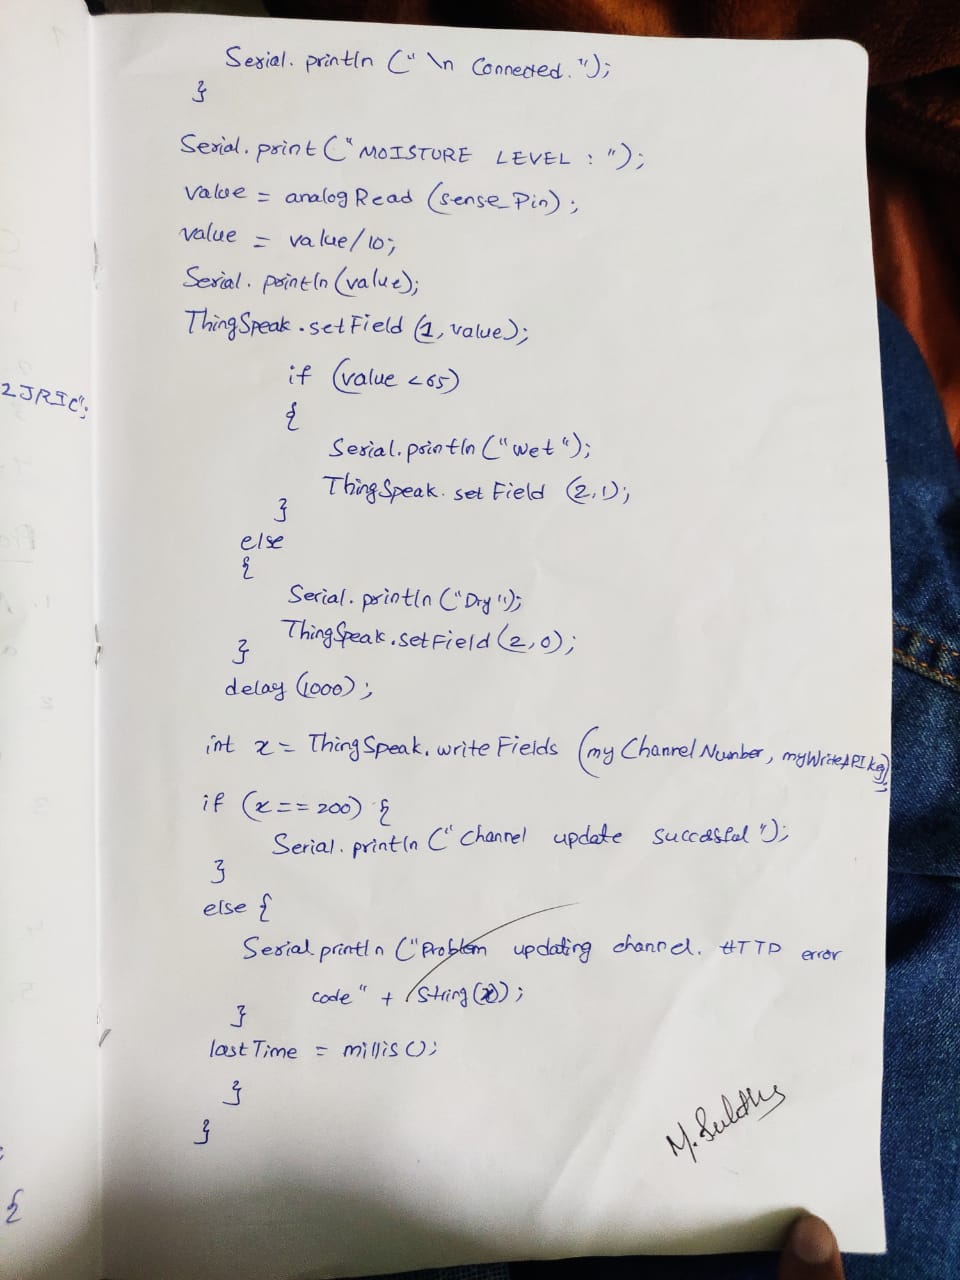 Serial. println (" \n Connected. ");
}
Serial. print (" MOISTURE LEVEL : ");
value = analog Read (sense_Pin) ;
value = value/10;
Serial. println (value);
ThingSpeak . setField (1, value);
if (value <65)
{
Serial. println (" wet ");
ThingSpeak. set Field (2,1);
}
else
{
Serial. println ("Dry");
ThingSpeak.setField (2,0);
}
delay (1000) ;
int x = ThingSpeak. write Fields (my Channel Number, myWriteAPIkey);
if (x == 200) {
Serial. println (" Channel update successful ");
}
else {
Serial println ("Problem updating channel. HTTP error
code " + String(x));
}
last Time = millis ();
}
}
2JRIC";
{